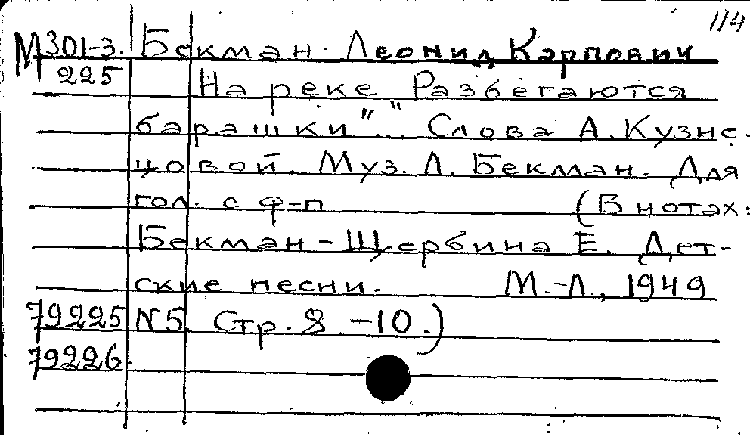 114
М301-3. Бекман. Леонид Карпович
225 На реке. Разбегаются
барашки"..." Слова А. Кузне-
цовой. Муз. Л. Бекман. Для
гол. с ф-п (В нотах:
Бекман-Щербина Е. Дет-
ские песни. М.-Л., 1949
79225 N5. Стр. 8.-10.)
79226.